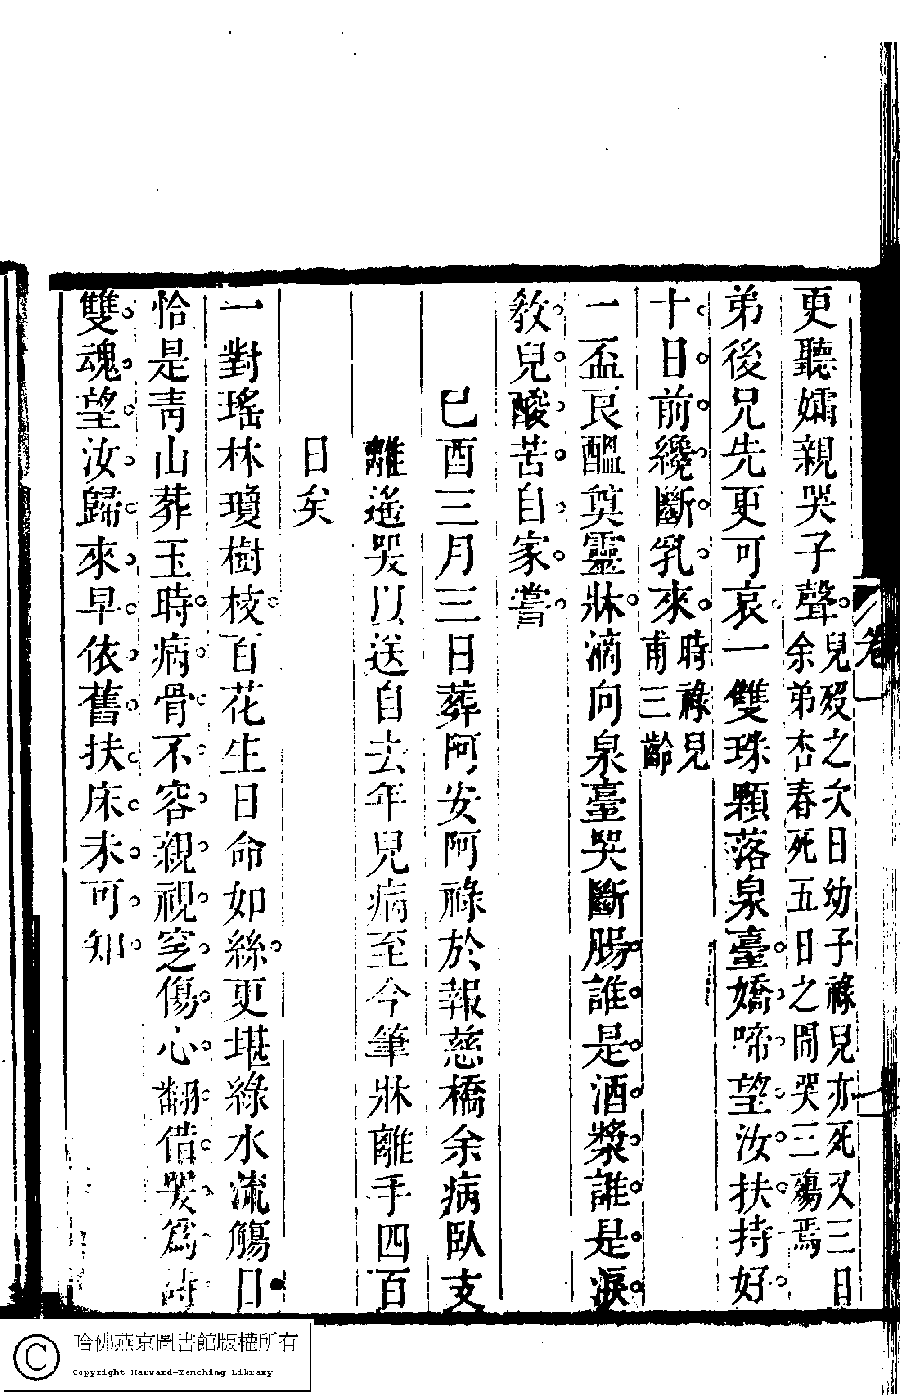 更聽孀親哭子聲兒殁之次日幼子祿兒亦死又三日
余弟杏春死五日之間哭三殤焉
弟後兄先更可哀一雙珠顆落泉臺嬌啼望汝扶持好
十日前纔斷乳來時祿兒
甫三齡
一盃艮醞奠靈牀滴向泉臺哭斷腸誰是酒漿誰是淚
敎兒酸苦自家嘗
巳酉三月三日葬阿安阿祿於報慈橋余病臥支
離遙哭以送自去年兒病至今筆牀離手四百
日矣
一對瑤林瓊樹枝百花生日命如絲更堪綠水流觴日
恰是靑山葬玉時病骨不容親視窆傷心翻借哭爲詩
雙魂望汝歸來早依舊扶床未可知
卷一
七
哈佛燕京圖書館版權所有
Copyright Harvard-Yenching Library